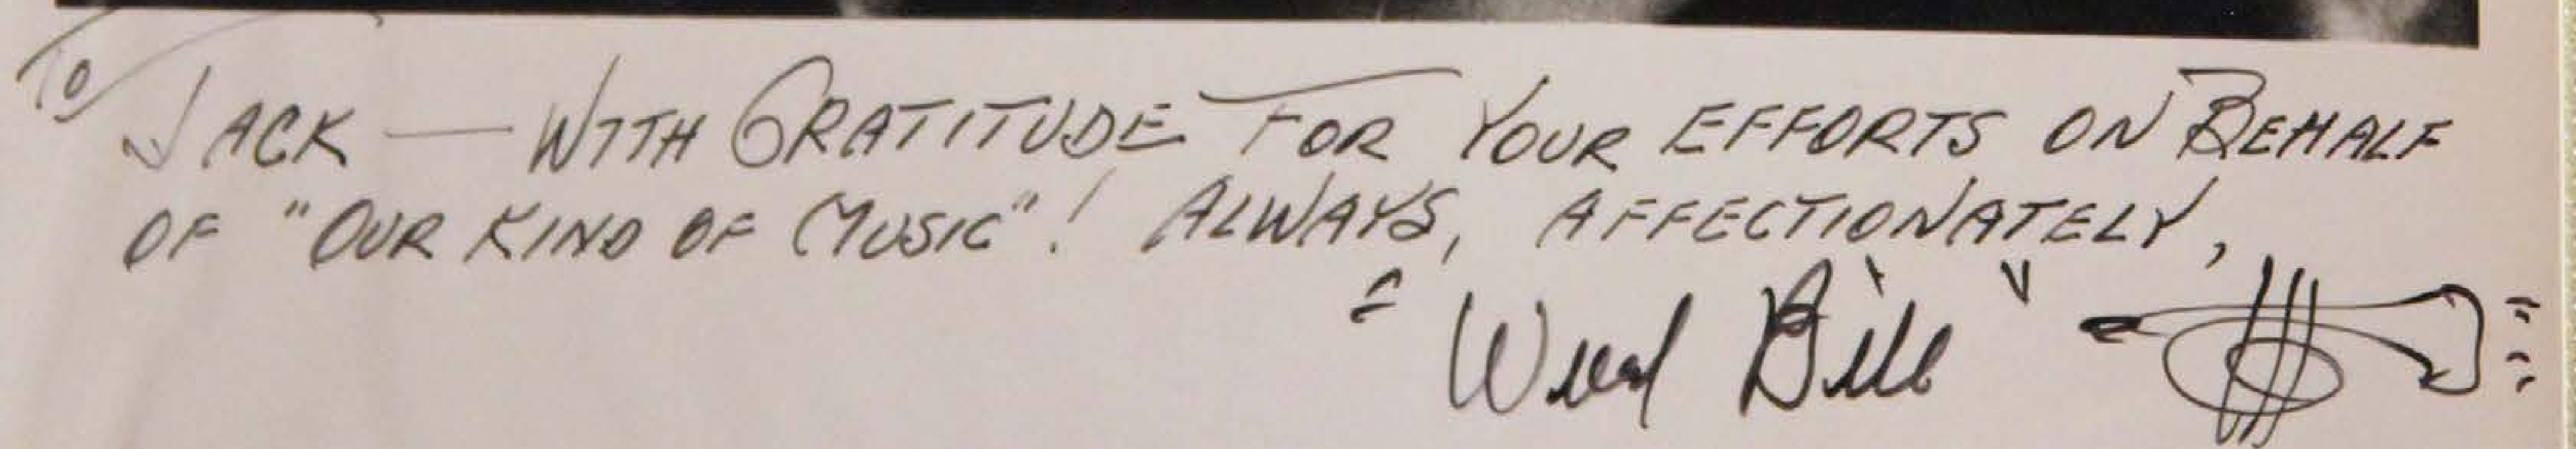 To
JACK — WITH GRATITUDE FOR YOUR EFFORTS ON BEHALF
OF "OUR KIND OF MUSIC"! ALWAYS, AFFECTIONATELY,
"Wild Bill"